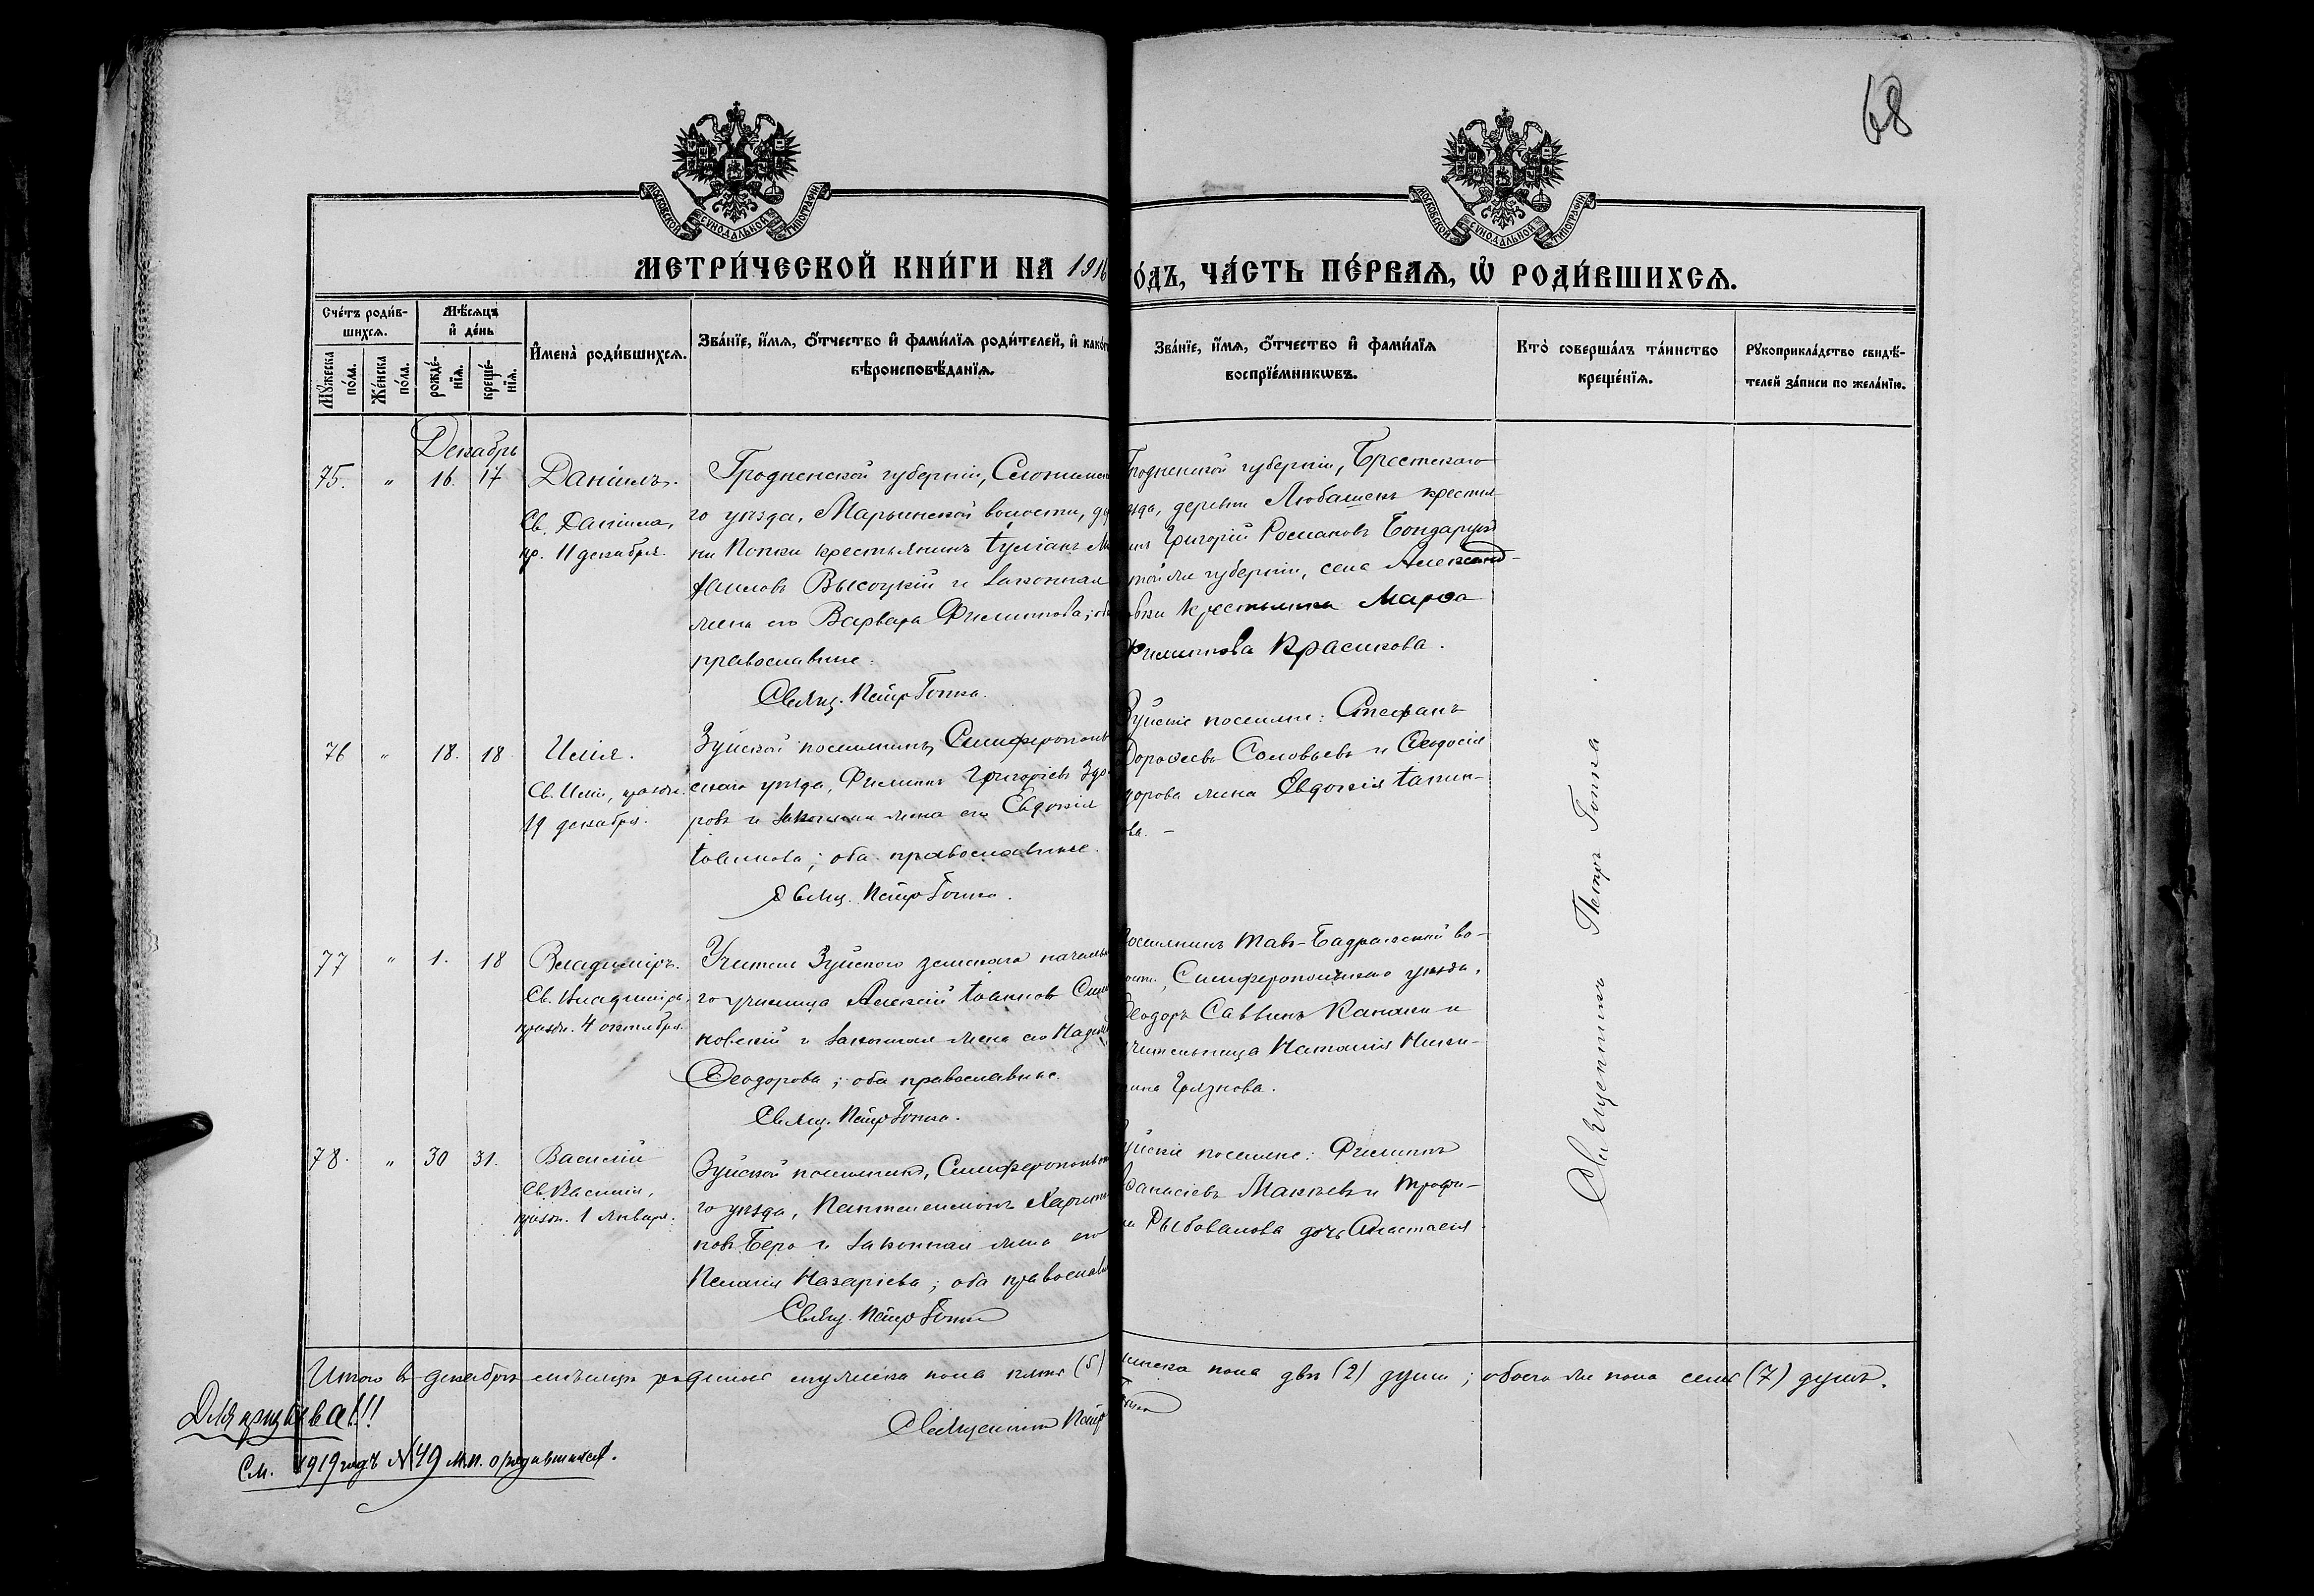 68
МОСКОВСКОЙ СУНОДАЛЬНОЙ ТИПОГРАФІИ
МОСКОВСКОЙ СУНОДАЛЬНОЙ ТИПОГРАФІИ
МЕТРИ́ЧЕСКОЙ КНИ́ГИ НА 1916
О́ДЪ, ЧА́СТЬ ПЕ́РВАѦ, Ѡ҆ РОДИ́ВШИХСѦ.
Сче́тъ роди́в-
шихсѧ.
Мѣ́сѧцъ
и҆ де́нь
Мꙋ́жеска
по́ла.
Же́нска
по́ла.
рожде́-
нїѧ.
креще́-
нїѧ.
И҆мена̀ роди́вшихсѧ.
Зва́нїе, и҆́мѧ, ѻ҆́тчество и҆ фами́лїѧ роди́телей, и҆ како́г
вѣроисповѣ́данїѧ.
Зва́нїе, и҆́мѧ, ѻ҆́тчество и҆ фами́лїѧ
воспрїе́мникѡвъ.
Кто̀ соверша́лъ та́инство
креще́нїѧ.
Рꙋкоприкла́дство свидѣ́-
телей за́писи по жела́нїю.
Декабрь
75. " 16. 17
Даніилъ.
Св. Даніила,
пр. 11 декабря.
Гродненской губерніи, Слонимск
го уѣзда, Марьинской волости, де
ни Попки крестьянинъ Іуліанъ Ми
хаиловъ Высоцкій и законная
жена его Варвара Филиппова; об
православные.
Свящ. Петръ Гопка.
Гродненской губерніи, Брестскаго
ѣзда, деревни Любашекъ крестья-
нинъ Григорій Романовъ Бондарукъ
той же губерніи, села Александ-
овки крестьянка Марѳа
Филиппова Красикова.
76 " 18. 18
Илія.
Св. Иліи, праздн.
19 декабря.
Зуйской поселянинъ, Симферополь
скаго уѣзда, Филиппъ Григоріевъ Здо
ровъ и законная жена его Евдокія
Іоаннова; оба православные.
Свящ. Петръ Гопка.
Зуйскіе поселяне: Стефанъ
Дороѳеевъ Соловьевъ и Ѳеодосія
дорова жена Евдокія Іоанн-
ова. –
77 " 1. 18
Владиміръ.
Св. Владиміра,
праздн. 4 октября.
Учитель Зуйскаго земскаго начальн
го училища Алексій Іоанновъ
ковскій и законная жена его Надежд
Ѳеодорова; оба православные.
Свящ. Петръ Гопка.
Поселянинъ Тавъ-Бадракской во-
лости, Симферопольскаго уѣзда,
Ѳеодоръ Саввинъ Капаки и
учительница Наталія Ники-
тина Грязнова.
78. " 30 31.
Василій
Св. Василія,
праздн. 1 января.
Зуйской поселянинъ, Симферопольск
го уѣзда, Пантелеимонъ Харито
новъ Беро и законная жена его
Пелагія Назаріева; оба православн
Свящ. Петръ Гопка
уйскіе поселяне: Филиппъ
Аѳанасіевъ Макѣевъ и Трофи-
ма Рыбовалова дочь Анастасія
Священникъ Петръ Гопка.
Итого въ декабрѣ мѣсяцѣ родилось мужеска пола пять (5)
женска пола двѣ (2) души; обоего же пола семь (7) душъ.
Священникъ Петръ
Гопка
Для призыва!!!
См. 1919 годъ №49 м.п. о родившихся.